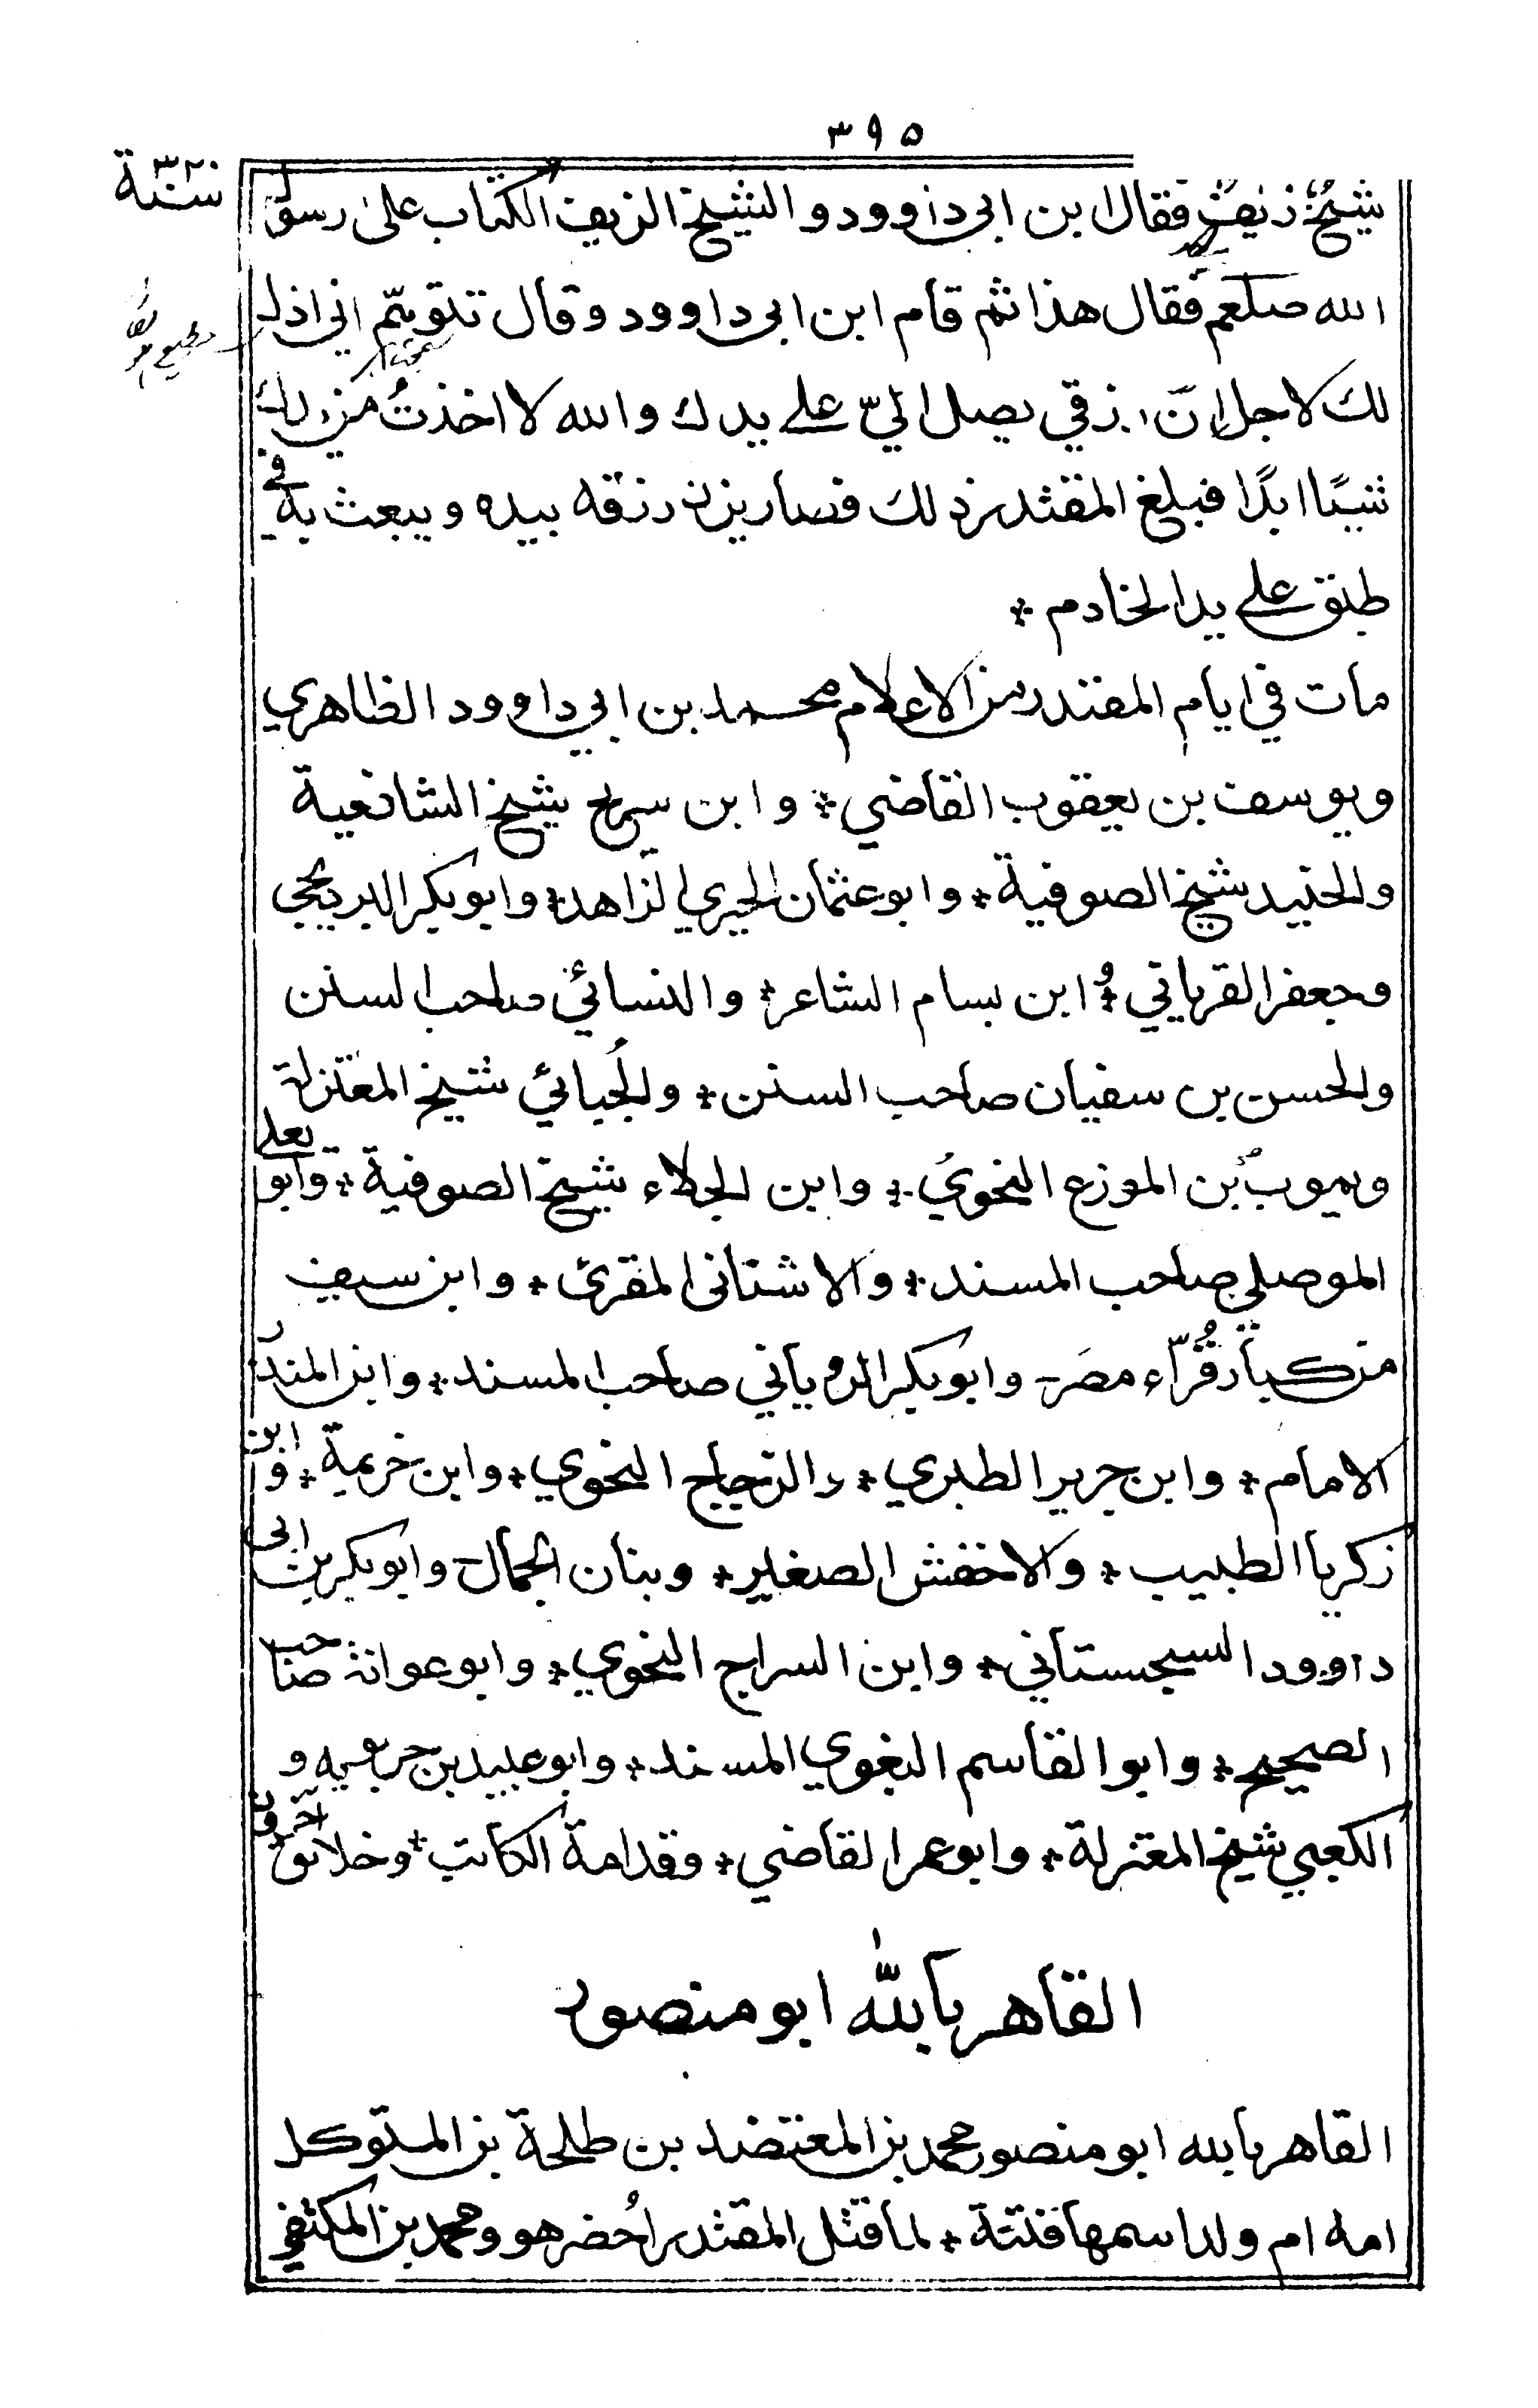 ٣٩٥
سنة ٣٢٠
شيخٌ زيفٌ فقال ابن ابي داوود والشيخ الزيف الكذاب على رسول
الله صلعم فقال هذا ثم قام ابن ابي داوود وقال تتوهّم اني اذل
لك لاجل انّ رزقي يصل اليّ على يدك والله لا اخذتُ من يدك
شيئًا ابدًا فبلغ المقتدر ذلك فصار يزن رزقه بيده ويبعث به في
طبق على يد الخادم *
مات في ايام المقتدر من الاعلام محمد بن ابي داوود الظاهري
ويوسف بن يعقوب القاضي * وابن سريج شيخ الشافعية
والجنيد شيخ الصوفية * وابو عثمان الحيري الزاهد * وابو بكر البرديجي
وجعفر القرياني * وابن بسام الشاعر * والنسائي صاحب السنن
والحسن بن سفيان صاحب السنن * والجُبائي شيخ المعتزلة
ويموت بن الموزع النحوي * وابن الجلاء شيخ الصوفية * وابو يعلى
الموصلي صاحب المسند * والاشناني المقرئ * وابن سيف
من كبار قُرّاء مصر - وابو بكر الروياني صاحب المسند * وابن المنذر
الامام * وابن جرير الطبري * والزجاج النحوي * وابن خزيمة * وابن
زكريا الطبيب * والاخفش الصغير * وبنان الجمال - وابو بكر بن ابي
داوود السجستاني * وابن السراج النحوي * وابو عوانة صاحب
الصحيح * وابو القاسم البغوي المسند * وابو عبيد بن حربويه و
الكعبي شيخ المعتزلة * وابو عمر القاضي * وقدامة الكاتب * وخلائق آخرون
القاهر بالله ابو منصور
القاهر بالله ابو منصور محمد بن المعتضد بن طلحة بن المتوكل
امه ام ولد اسمها فتنة * لما قتل المقتدر اُحضر هو ومحمد بن المكتفي